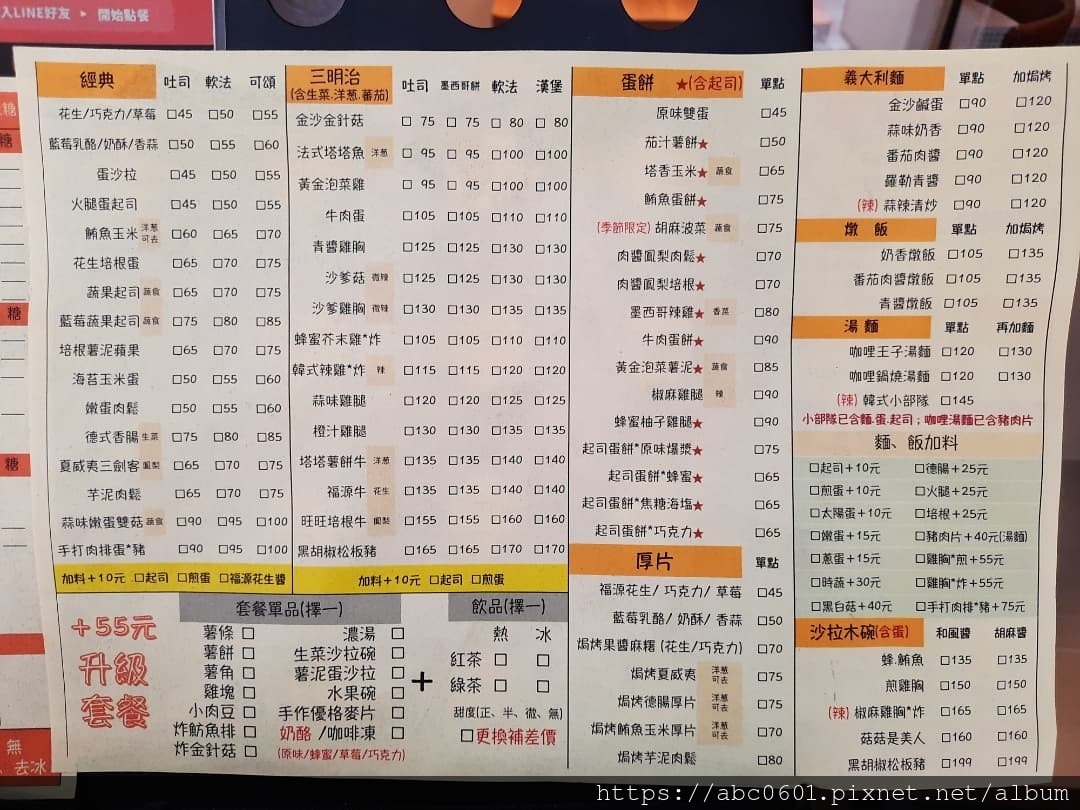 入LINE好友 ▶ 開始點餐
經典 吐司 軟法 可頌
花生/巧克力/草莓 □45 □50 □55
藍莓乳酪/奶酥/香蒜 □50 □55 □60
蛋沙拉 □45 □50 □55
火腿蛋起司 □45 □50 □55
鮪魚玉米 洋蔥可去 □60 □65 □70
花生培根蛋 □65 □70 □75
蔬果起司 蔬食 □65 □70 □75
藍莓蔬果起司 蔬食 □75 □80 □85
培根薯泥蘋果 □65 □70 □75
海苔玉米蛋 □50 □55 □60
嫩蛋肉鬆 □50 □55 □60
德式香腸 生菜 □75 □80 □85
夏威夷三劍客 鳳梨 □65 □70 □75
芋泥肉鬆 □65 □70 □75
蒜味嫩蛋雙菇 蔬食 □90 □95 □100
手打肉排蛋*豬 □90 □95 □100
加料+10元 □起司 □煎蛋 □福源花生醬
三明治 (含生菜.洋蔥.蕃茄) 吐司 墨西哥餅 軟法 漢堡
金沙金針菇 □ 75 □ 75 □ 80 □ 80
法式塔塔魚 洋蔥 □ 95 □ 95 □100 □100
黃金泡菜雞 □ 95 □ 95 □100 □100
牛肉蛋 □105 □105 □110 □110
青醬雞胸 □125 □125 □130 □130
沙爹菇 微辣 □125 □125 □130 □130
沙爹雞胸 微辣 □130 □130 □135 □135
蜂蜜芥末雞*炸 □105 □105 □110 □110
韓式辣雞*炸 辣 □115 □115 □120 □120
蒜味雞腿 □120 □120 □125 □125
橙汁雞腿 □130 □130 □135 □135
塔塔薯餅牛 洋蔥 □135 □135 □140 □140
福源牛 花生 □135 □135 □140 □140
旺旺培根牛 鳳梨 □155 □155 □160 □160
黑胡椒松板豬 □165 □165 □170 □170
加料+10元 □起司 □煎蛋
+55元
升級
套餐
套餐單品(擇一)
薯條 □ 濃湯 □
薯餅 □ 生菜沙拉碗 □
薯角 □ 薯泥蛋沙拉 □
雞塊 □ 水果碗 □
小肉豆 □ 手作優格麥片 □
炸魴魚排 □ 奶酪/咖啡凍 □
炸金針菇 □ (原味/蜂蜜/草莓/巧克力)
+
飲品(擇一)
熱 冰
紅茶 □ □
綠茶 □ □
甜度(正、半、微、無)
□更換補差價
蛋餅 ★(含起司) 單點
原味雙蛋 □45
茄汁薯餅★ □50
塔香玉米★ 蔬食 □65
鮪魚蛋餅★ □75
(季節限定) 胡麻波菜 蔬食 □75
肉醬鳳梨肉鬆★ □70
肉醬鳳梨培根★ □70
墨西哥辣雞★ 香菜 □80
牛肉蛋餅★ □90
黃金泡菜薯泥★ 蔬食 □85
椒麻雞腿 辣 □90
蜂蜜柚子雞腿★ □90
起司蛋餅*原味爆漿★ □75
起司蛋餅*蜂蜜★ □65
起司蛋餅*焦糖海塩★ □65
起司蛋餅*巧克力★ □65
厚片 單點
福源花生/ 巧克力/ 草莓 □45
藍莓乳酪/ 奶酥/ 香蒜 □50
焗烤果醬麻糬 (花生/巧克力) □70
焗烤夏威夷 洋蔥可去 □75
焗烤德腸厚片 洋蔥可去 □75
焗烤鮪魚玉米厚片 洋蔥可去 □70
焗烤芋泥肉鬆 □80
義大利麵 單點 加焗烤
金沙鹹蛋 □90 □120
蒜味奶香 □90 □120
番茄肉醬 □90 □120
羅勒青醬 □90 □120
(辣) 蒜辣清炒 □90 □120
燉 飯 單點 加焗烤
奶香燉飯 □105 □135
番茄肉醬燉飯 □105 □135
青醬燉飯 □105 □135
湯 麵 單點 再加麵
咖哩王子湯麵 □120 □130
咖哩鍋燒湯麵 □120 □130
(辣) 韓式小部隊 □145
小部隊已含麵.蛋.起司；咖哩湯麵已含豬肉片
麵、飯加料
□起司+10元 □德腸+25元
□煎蛋+10元 □火腿+25元
□太陽蛋+10元 □培根+25元
□嫩蛋+15元 □豬肉片+40元(湯麵)
□蔥蛋+15元 □雞胸*煎+55元
□時蔬+30元 □雞胸*炸+55元
□黑白菇+40元 □手打肉排*豬+75元
沙拉木碗(含蛋) 和風醬 胡麻醬
蜂.鮪魚 □135 □135
煎雞胸 □150 □150
(辣) 椒麻雞胸*炸 □165 □165
菇菇是美人 □160 □160
黑胡椒松板豬 □199 □199
糖
糖
糖
糖
無
、去冰
https://abc0601.pixnet.net/album